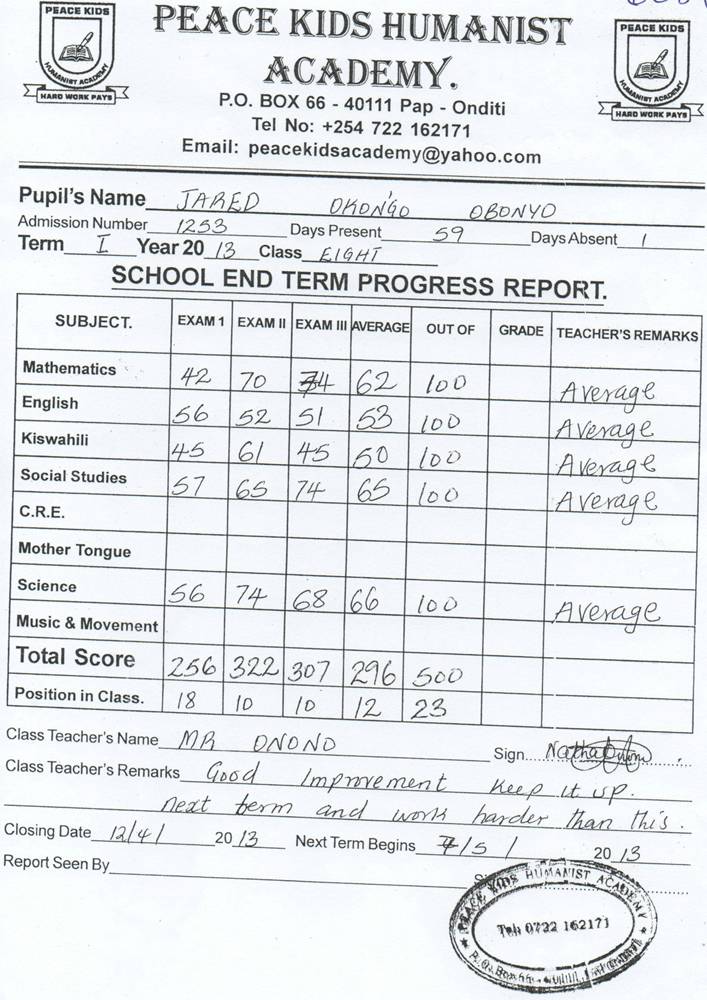 PEACE KIDS
HUMANIST ACADEMY
HARD WORK PAYS
PEACE KIDS HUMANIST
ACADEMY.
P.O. BOX 66 - 40111 Pap - Onditi
Tel No: +254 722 162171
Email: peacekidsacademy@yahoo.com
PEACE KIDS
HUMANIST ACADEMY
HARD WORK PAYS
Pupil's Name JARED OKONGO OBONYO
Admission Number 1253 Days Present 59 Days Absent 1
Term I Year 2013 Class EIGHT
SCHOOL END TERM PROGRESS REPORT.
SUBJECT. EXAM 1 EXAM II EXAM III AVERAGE OUT OF GRADE TEACHER'S REMARKS
Mathematics 42 70 74 62 100 Average
English 56 52 51 53 100 Average
Kiswahili 45 61 45 50 100 Average
Social Studies 57 65 74 65 100 Average
C.R.E.
Mother Tongue
Science 56 74 68 66 100 Average
Music & Movement
Total Score 256 322 307 296 500
Position in Class. 18 10 10 12 23
Class Teacher's Name MR ONONO Sign
Class Teacher's Remarks Good Improvement keep it up.
next term and work harder than this.
Closing Date 12/4/ 2013 Next Term Begins 7/5/ 2013
Report Seen By
PEACE KIDS HUMANIST ACADEMY
Tel: 0722 162171
P.O. Box 66